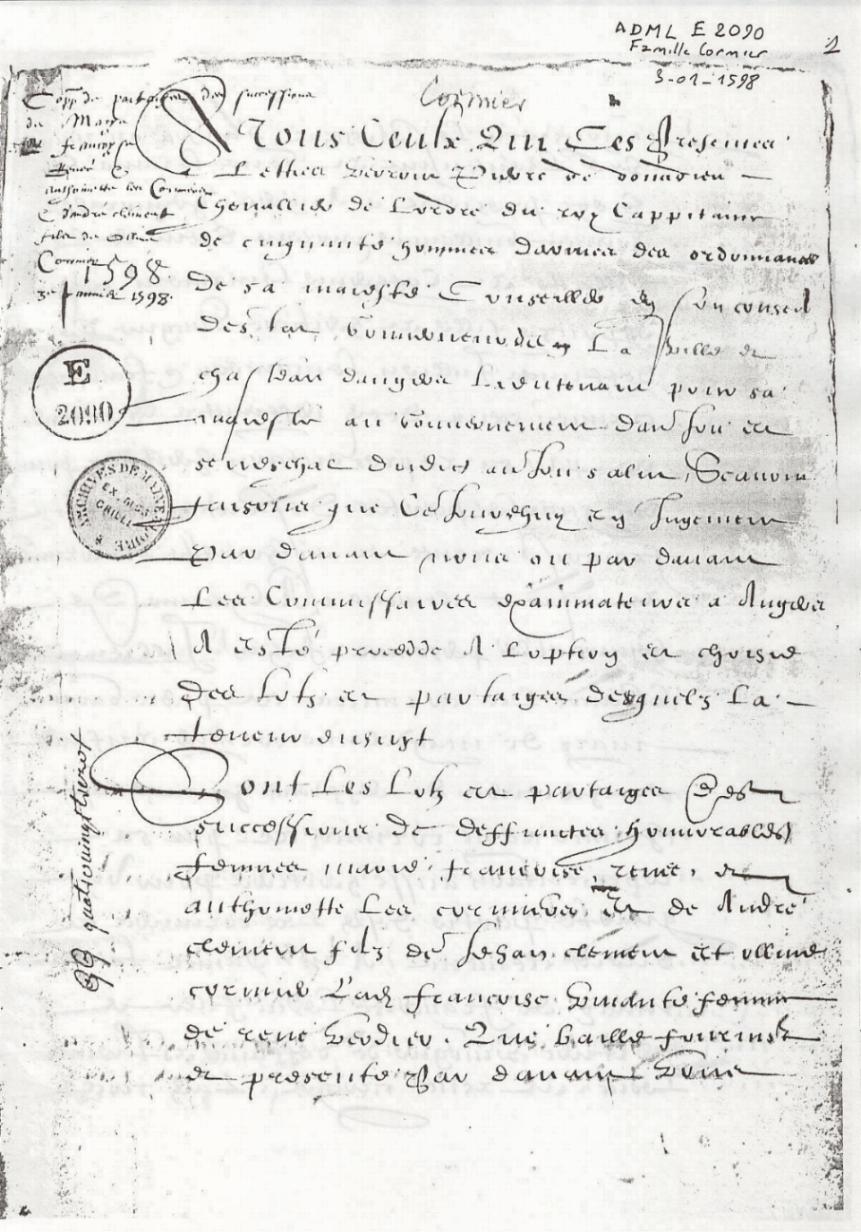 ADML E 2090
Famille Cormier
3-01-1598
1
Cormier
Coppie de partaiges des successions
de Marie
francoyse
Renee &
anthoinette les Cormiers
& dandre clement
filz de
Cormier
1598
3e janvier 1598
E
2090
ARCHIVES DE MAINE & LOIRE
A Tous Ceulx Qui Ces presentes
Lettres verront Pierre de donadieu
Chevallier de Lordre du roy Cappitaine
de cinquante hommes darmes des ordonnances
de sa majeste Conseiller en son conseil
destat Gouverneur de la ville et
chasteau dangers Lieutenant pour sa
majeste au Gouvernement danjou et
seneschal dudict anjou salut Scavoir
faisons que Cejourdhuy en Jugement
Par davant nous ou par davant
Les Commissaires examinateurs a Angers
A este procedde A Loption et choisie
des lotz et partaiges desquelz la
teneur ensuyt
Sont Les Lotz et partaiges des
successions de deffunctes honnorables
femmes marie, francoise, renee, et
anthoinette Les cormiers et de Andre
clement filz de Jehan clement et olline
cormier Lad francoise vivante femme
de rene verdier. Que baille fournist
et presente Par davant vous
99 quatrevingt